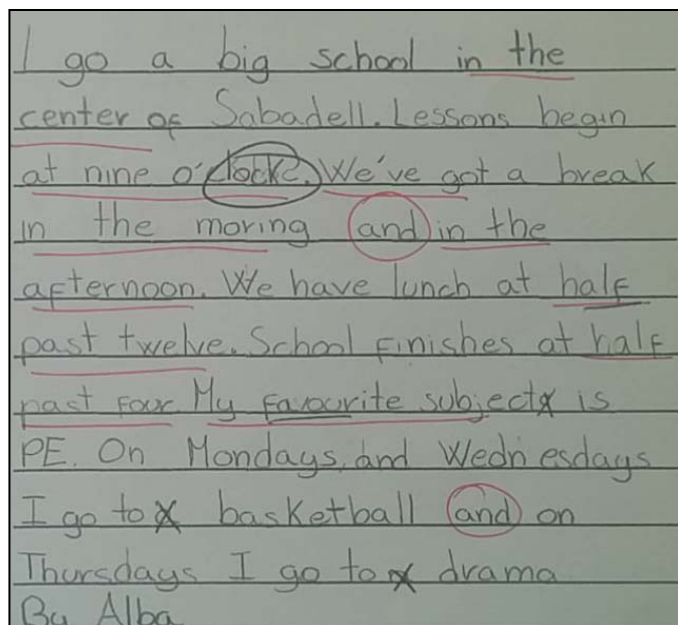 I go a big school in the
center of Sabadell. Lessons begin
at nine o'clocke. We've got a break
in the moring and in the
afternoon. We have lunch at half
past twelve. School finishes at half
past four. My favourite subject is
PE. On Mondays and Wednesdays
I go to basketball and on
Thursdays I go to drama
By Alba